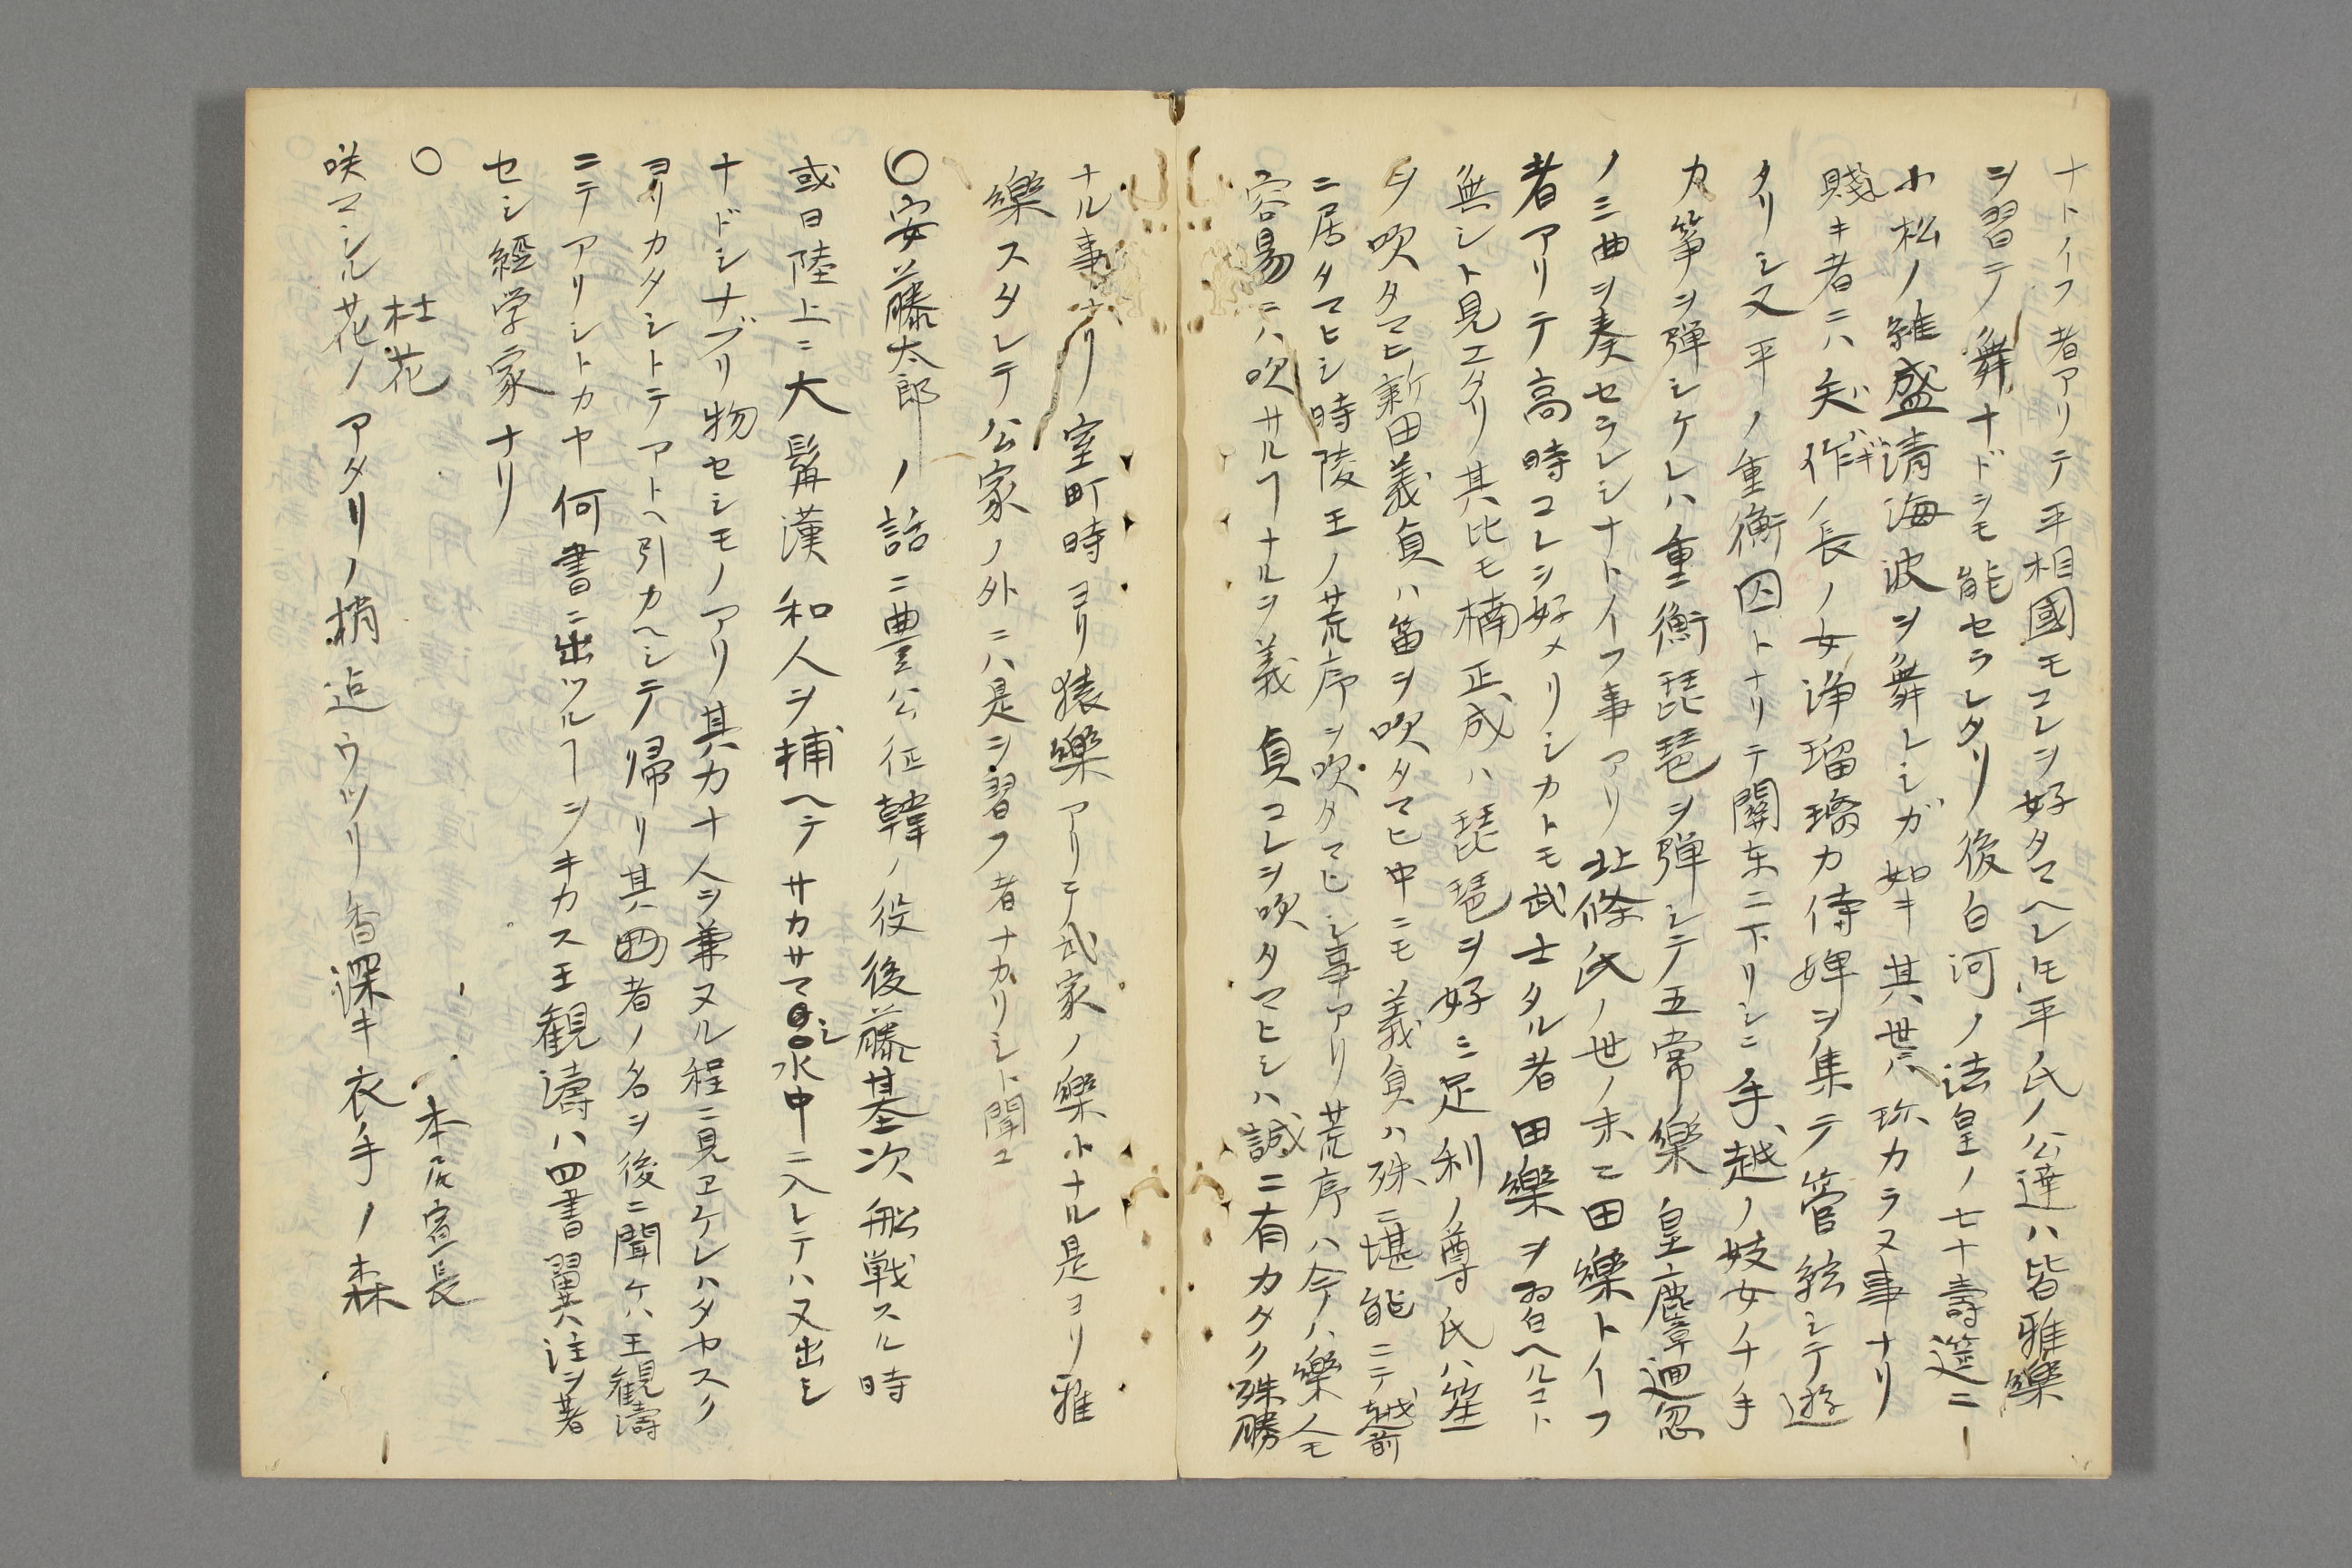 ナトイフ者アリテ平相國モコレヲ好タマヘレ𪜈平氏ノ公達ハ皆雅樂
ヲ習テノ舞ナドシモ能セラレタリ後白河ノ法皇ノ七十壽筵ニ
小松ノ維盛清海波ヲ舞レシガ如キ其世ニハ珎カラヌ事ナリ
賤キ者ニハ矢作ハギノ長ノ女浄瑠璃カ侍婢ヲ集テ管絃シテ遊
タリシ又平ノ重衡囚トナリテ關东ニ下リシニ手越ノ妓女ノ千手
カ筝ヲ弾シケレハ重衡琵琶ヲ弾シテ五常樂皇麞廻忽
ノ三曲ヲ奏セラレシナトイフ事アリ北條氏ノ世ノ末ニ田樂トイフ
者アリテ高時コレヲ好メリシカトモ武士タル者田樂ヲ習ヘルコト
無シト見エタリ其比モ楠正成ハ琵琶ヲ好ミ足利ノ尊氏ハ笙
ヲ吹タマヒ新田義貞ハ笛ヲ吹タマヒ中ニモ義貞ハ殊ニ堪能ニテ越前
ニ居タマヒシ時陵王ノ荒序ヲ吹タマヒシ事アリ荒序ハ今ハ樂人モ
容易ニハ吹サルヿナルヲ義貞コレヲ吹タマヒシハ誠ニ有カタク殊勝
ナル事ナリ室町時ヨリ猿樂アリテ武家ノ樂ホナル是ヨリ雅
樂スタレテ公家ノ外ニハ是ヲ習フ者ナカリシト聞ユ
〇安藤太郎ノ話ニ豊公征韓ノ役後藤基次船戦スル時
或日陸上ニ大髯漢和人ヲ捕ヘテサカサマニシ水中ニ入レテハ又出シ
ナドシナブリ物セシモノアリ其力十人ヲ兼ヌル程ニ見ヱケレハタヤスク
ヨリカタシトテアトヘ引カヘシテ帰リ其者ノ名ヲ後ニ聞ケハ王観濤
ニテアリシトカヤ何書ニ出ツルヿヲキカス王観濤ハ四書翼注ヲ著
セシ經学家ナリ
〇
杜花
本居宣長
咲マシル花ノアタリノ梢迄ウツリ香深キ衣手ノ森